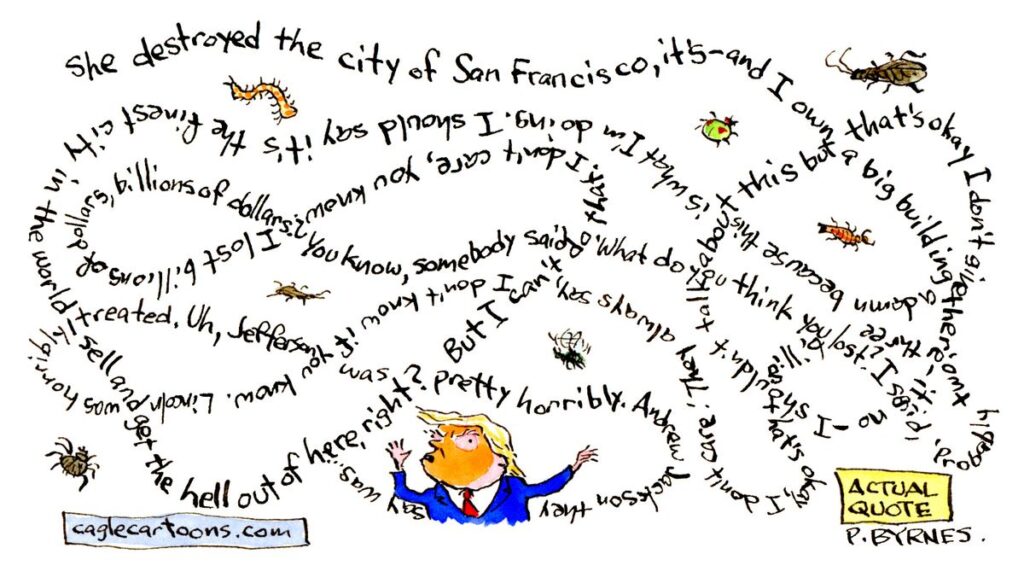 She destroyed the city of San Francisco, it's–and I own a big building there–it's, no – I shouldn't talk about this but that's okay I don't give a damn because this is what I'm doing. I should say it's the finest city in the world I sell and get the hell out of here, right? But I can't do that. I don't care, you know? I lost billions of dollars, billions of dollars. You know, somebody said, "What do you think you lost?" I said, "probably two three billion. that's okay, I don't care. They always say, I don't know if you know. Lincoln was horribly treated. Uh, Jefferson was pretty horribly. Andrew Jackson they say was
caglecartoons.com
ACTUAL
QUOTE
P. BYRNES.